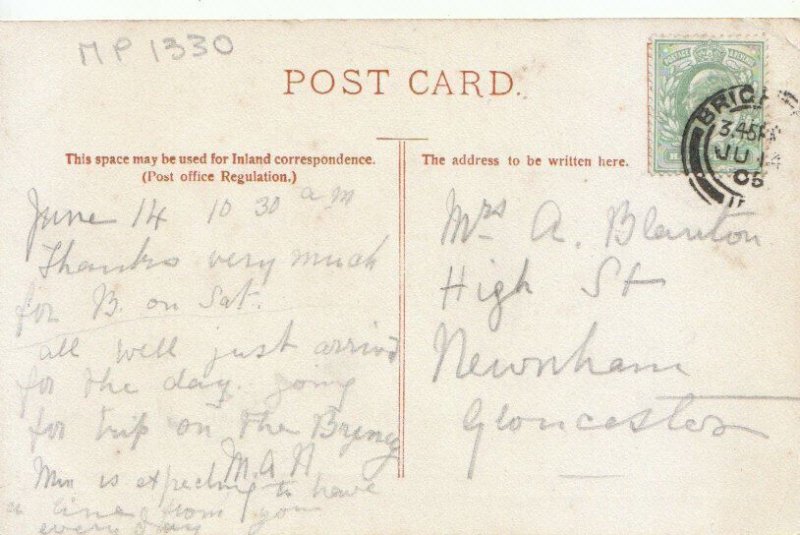 MP 1330
POST CARD.
This space may be used for Inland correspondence.
(Post office Regulation.)
The address to be written here.
POSTAGE
BRIG
3.45 P
JU 14
05
June 14 10 30 am
Thanks very much
for B. on Sat.
all well just arrived
for the day. going
for trip on the
M.A.N
is expecting to have
a line from you
every day
Mrs A. Blanton
High St
Newnham
Gloucester